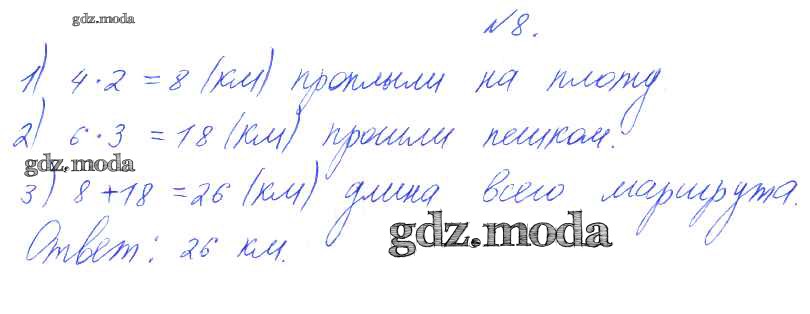 gdz.moda
№8.
1) 4·2 = 8 (км) проплыли на плоту.
2) 6·3 = 18 (км) прошли пешком.
gdz.moda
3) 8+18 = 26 (км) длина всего маршрута.
gdz.moda
Ответ: 26 км.